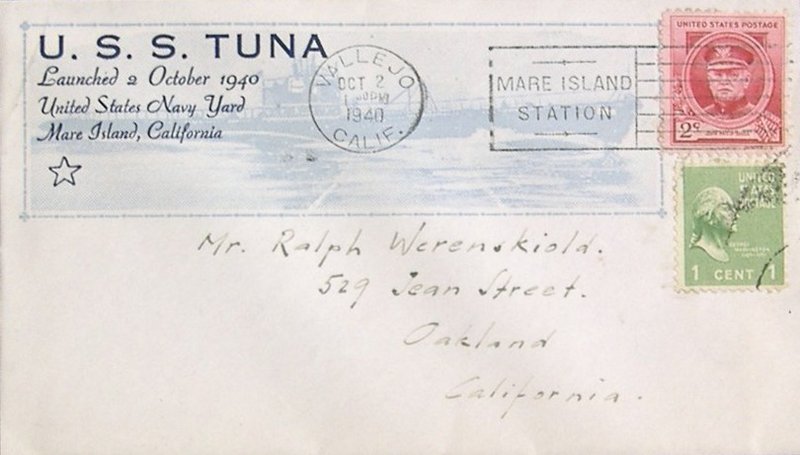 U. S. S. TUNA
Launched 2 October 1940
United States Navy Yard
Mare Island, California
VALLEJO
OCT 2
1940
CALIF.
MARE ISLAND
STATION
UNITED STATES POSTAGE
2¢
UNITED
STATES
POSTAGE
GEORGE
WASHINGTON
1 CENT 1
Mr. Ralph Werenskiold.
529 Jean Street.
Oakland
California.